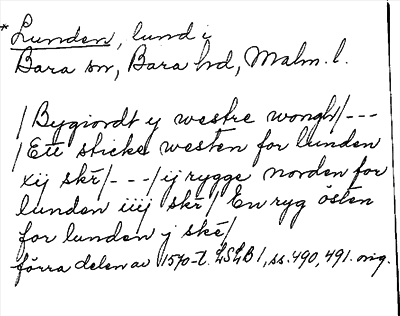 * Lunden, lund i
Bara sn, Bara hd, Malm. l.
/Bygiordt y westre wongh/---
/Ett sticke westen for lunden
xij skr/---/ij rygge norden for
lunden iiij skr/ En ryg östen
for lunden j ské/
förra delen av 1570-t. LSLB 1, ss. 490, 491. orig.